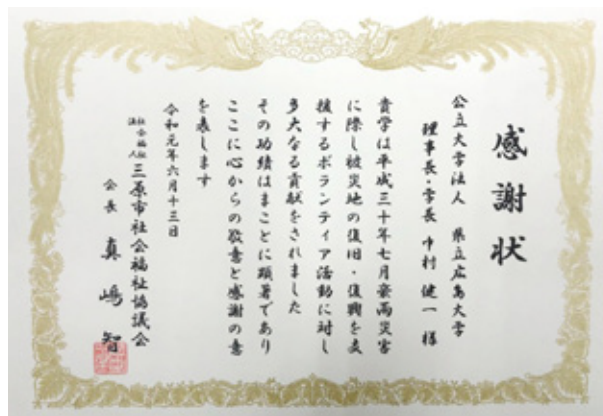 感謝状
公立大学法人 県立広島大学
理事長・学長 中村 健一 様
貴学は平成三十年七月豪雨災害
に際し被災地の復旧・復興を支
援するボランティア活動に対し
多大なる貢献をされました
その功績はまことに顕著であり
ここに心からの敬意と感謝の意
を表します
令和元年六月十三日
社会福祉法人 三原市社会福祉協議会
会長 真嶋 智